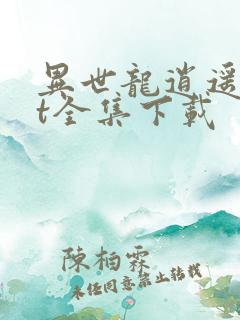 異世龍逍遥
t全集下載
陳柏霖
未经同意禁止转载